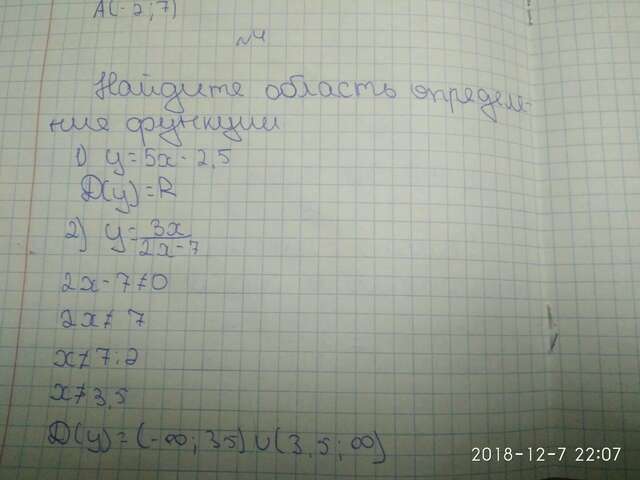 A(-2;7)
№4
Найдите область определе-
ние функции
1) y=5x-2,5
D(y)=R
2) y=3x/2x-7
2x-7≠0
2x≠7
x≠7:2
x≠3,5
D(y)=(-∞;3,5)∪(3,5;∞)
2018-12-7 22:07